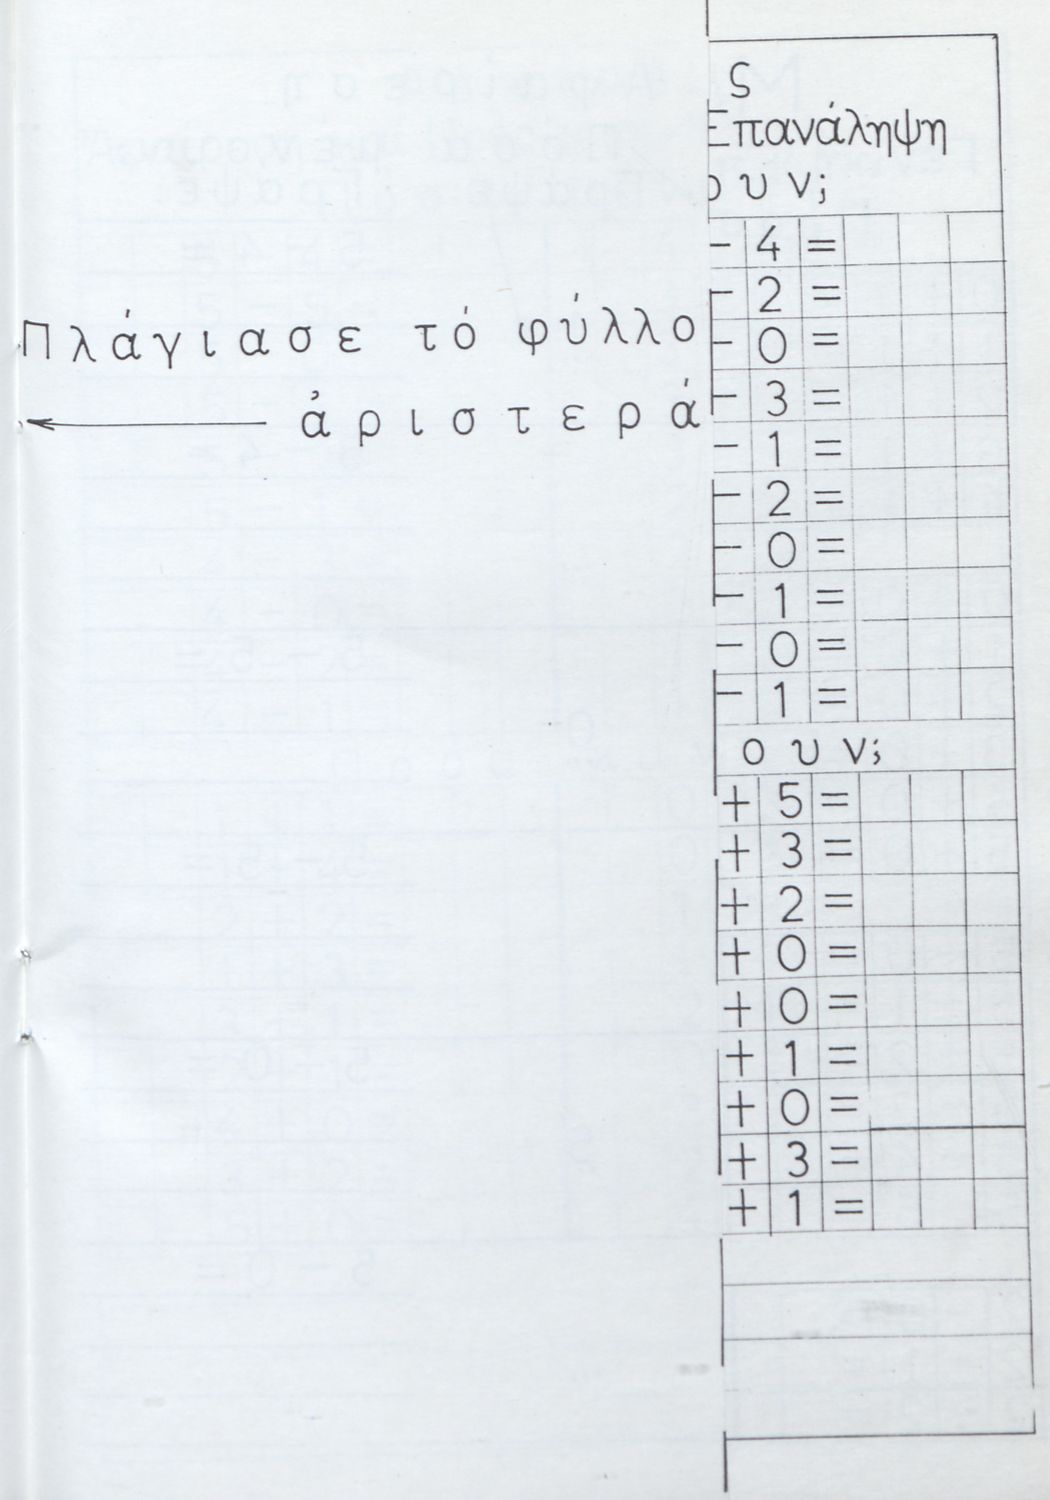 ς
Επανάληψη
ο υ ν;
- 4 =
- 2 =
Πλάγιασε τό φύλλο
- 0 =
- 3 =
ἀριστερά
- 1 =
- 2 =
- 0 =
- 1 =
- 0 =
- 1 =
ο υ ν;
+ 5 =
+ 3 =
+ 2 =
+ 0 =
+ 0 =
+ 1 =
+ 0 =
+ 3 =
+ 1 =